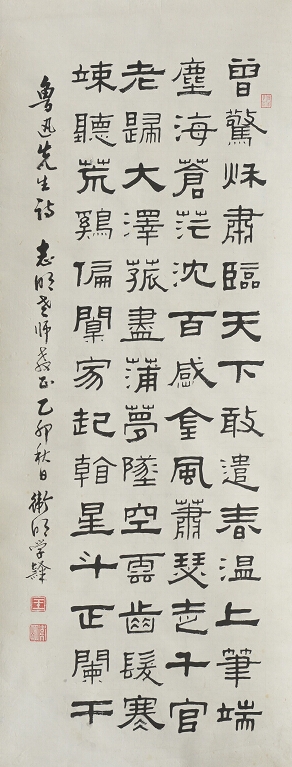 曾驚秌肅臨天下敢遣春溫上筆端
塵海蒼茫沈百感金風蕭瑟走千官
老歸大澤菰盡蒲夢墜空雲齒髮寒
竦聽荒鷄偏闃寂起看星斗正闌干
魯迅先生詩 志明老師教正 乙卯秋日 衛明学隸